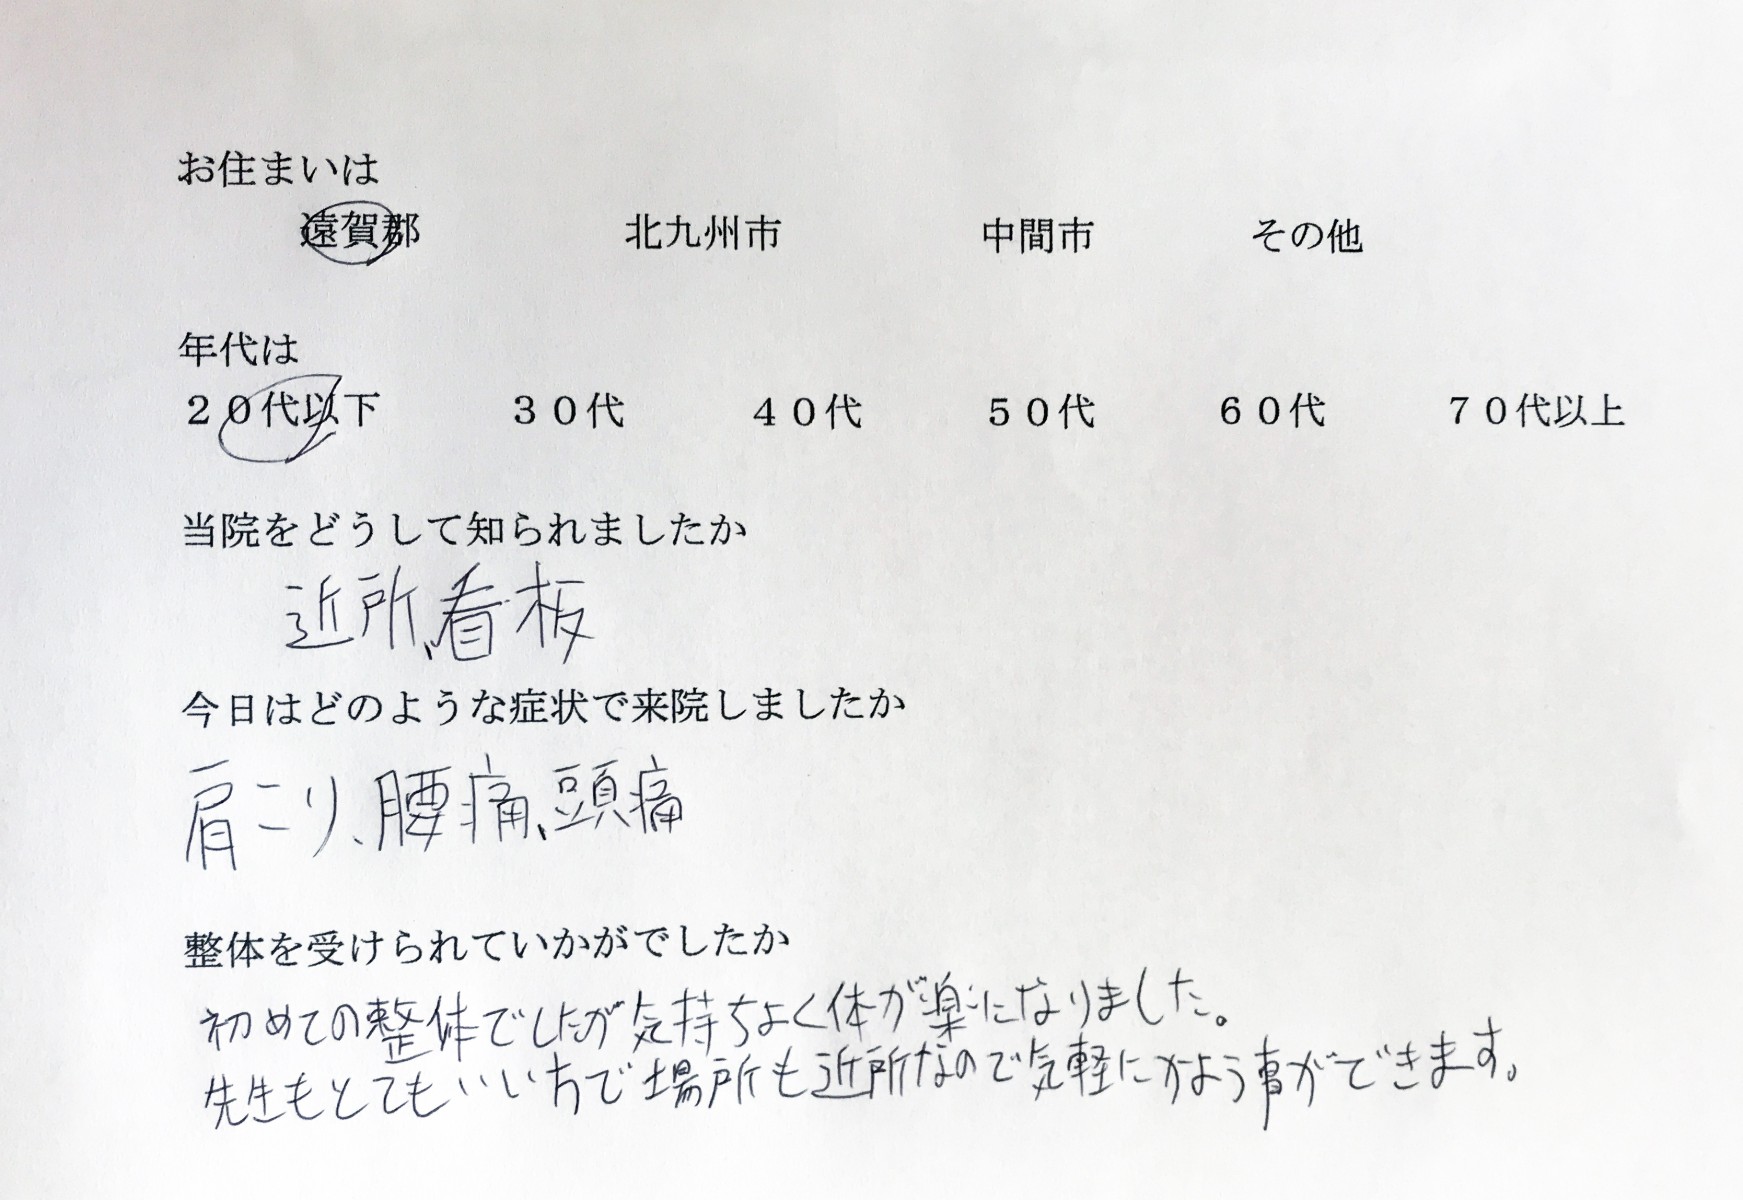 お住まいは
遠賀郡 北九州市 中間市 その他
年代は
２０代以下 ３０代 ４０代 ５０代 ６０代 ７０代以上
当院をどうして知られましたか
近所、看板
今日はどのような症状で来院しましたか
肩こり、腰痛、頭痛
整体を受けられていかがでしたか
初めての整体でしたが気持ちよく体が楽になりました。
先生もとてもいい方で場所も近所なので気軽にかよう事ができます。